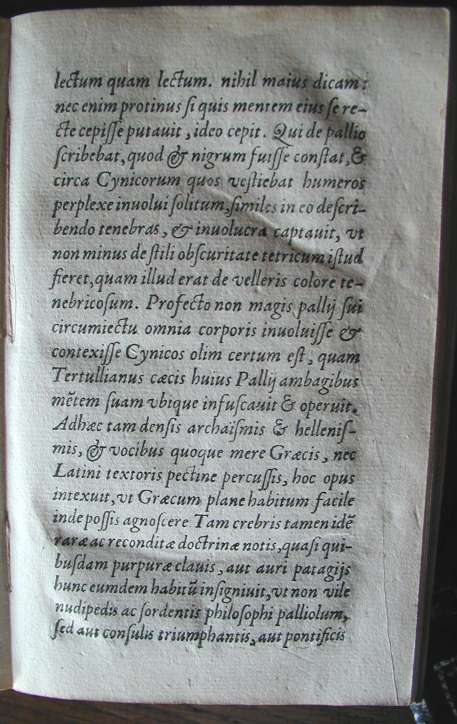 lectum quam lectum. nihil maius dicam:
nec enim protinus si quis mentem eius se re-
cte cepisse putauit, ideo cepit. Qui de pallio
scribebat, quod & nigrum fuisse constat, &
circa Cynicorum quos vestiebat humeros
perplexe inuolui solitum, similes in eo descri-
bendo tenebras, & inuolucra captauit, vt
non minus de stili obscuritate tetricum istud
fieret, quam illud erat de velleris colore te-
nebricosum. Profecto non magis pallij sui
circumiectu omnia corporis inuoluisse &
contexisse Cynicos olim certum est, quam
Tertullianus cæcis huius Pallij ambagibus
mētem suam vbique infuscauit & operuit.
Adhæc tam densis archaismis & hellenis-
mis, & vocibus quoque mere Græcis, nec
Latini textoris pectine percussis, hoc opus
intexuit, vt Græcum plane habitum facile
inde possis agnoscere Tam crebris tamen idē
raræ ac reconditæ doctrinæ notis, quasi qui-
busdam purpuræ clauis, aut auri patagijs
hunc eumdem habitū insigniuit, vt non vile
nudipedis ac sordentis philosophi palliolum,
sed aut consulis triumphantis, aut pontificis